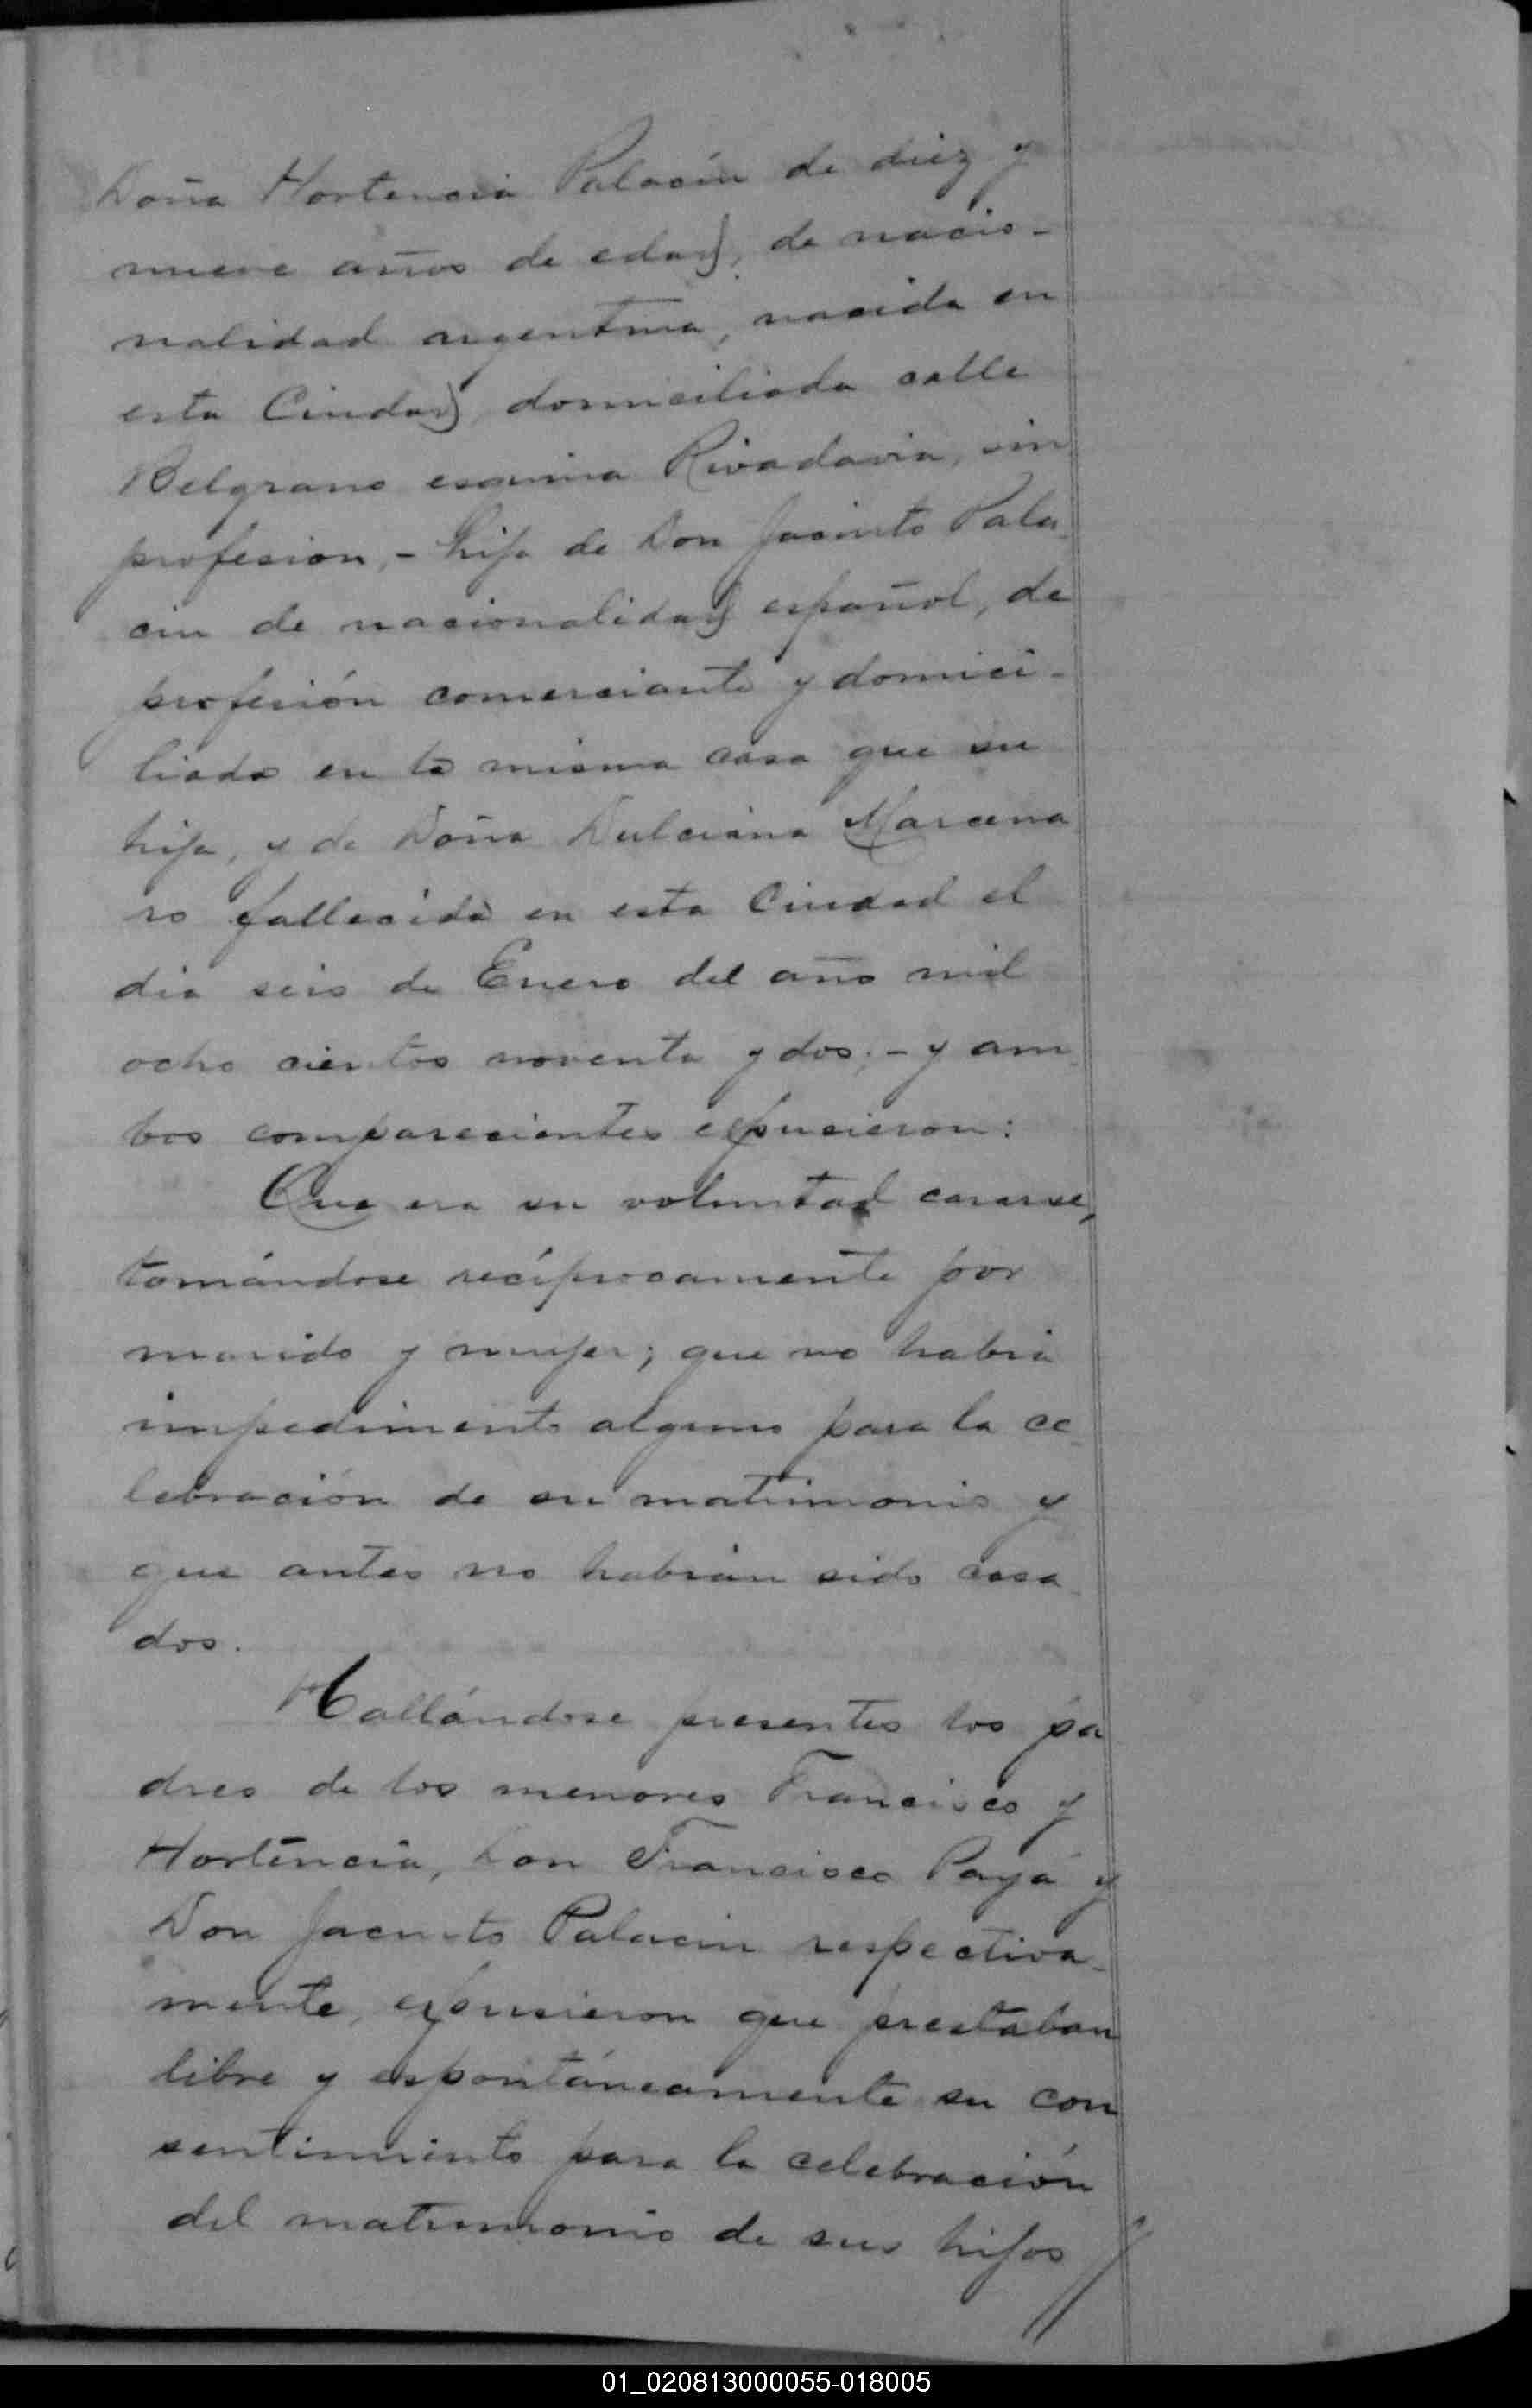 Doña Hortencia Palacín de diez y
nueve años de edad, de nacio-
nalidad argentina, nacida en
esta Ciudad, domiciliada calle
Belgrano esquina Rivadavia, sin
profesion, - hija de Don Jacinto Pala
cin de nacionalidad español, de
profesión comerciante y domici-
liado en la misma casa que su
hija, y de Doña Dulciana Marcena
ro fallecida en esta Ciudad el
dia seis de Enero del año mil
ocho cientos noventa y dos; - y am
bos comparecientes espusieron:
Que era su voluntad casarse,
tomándose recíprocamente por
marido y mujer; que no habia
impedimento alguno para la ce
lebración de su matrimonio y
que antes no habian sido casa
dos.
Hallándose presentes los pa
dres de los menores Francisco y
Hortencia, Don Francisco Payá y
Don Jacinto Palacin respectiva-
mente, espusieron que prestaban
libre y espontáneamente su con
sentimiento para la celebración
del matrimonio de sus hijos
01_020813000055-018005